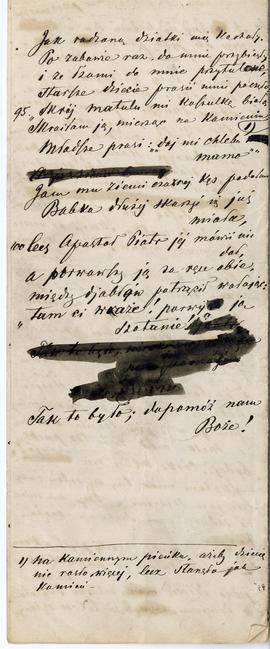 Jak rodzone dziatki mię kochały.
Po zabawie raz do mnie przybiegły
i ze łzami do mnie przytulone,
starsze dziecię prosi mnie
95. „Skrój matulu mi koszulkę białą
Skroiłam ją, mierząc na kamieniu 1)
Młodsze prosi: „daj mi chleba
mamo"
Jam mu ziemi czarnej kęs podała
Babka dłużej skarżyć już
miała,
100 lecz Apostoł Piotr jej mówić nie
dał,
a porwawszy ją za ręce obie,
między djabłów potrącił wołając:
„tam ci wraże! porwij ją
szatanie!
Tak to było; dopomóż nam
Boże!
1) Na kamiennym pieńku, ażeby dziecię
nie rosło więcej, lecz stanęło jak
kamień.